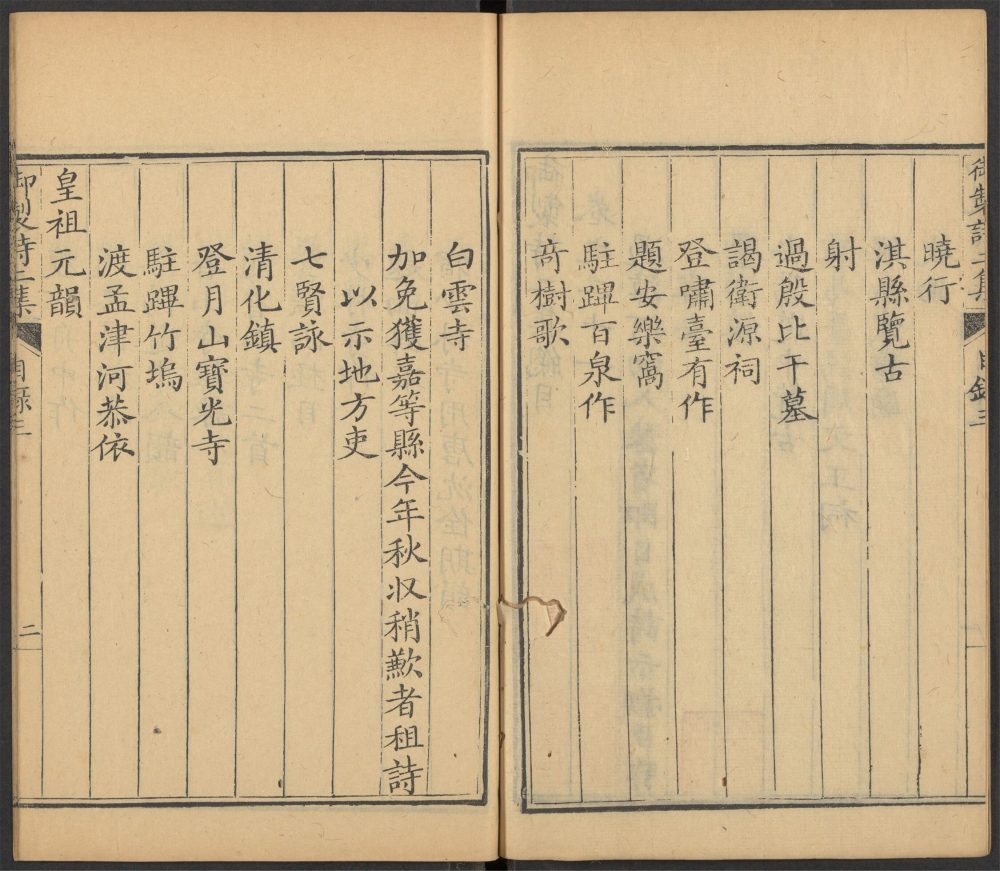 御製詩二集
目錄三
曉行
淇縣覽古
射
過殷比干墓
謁衛源祠
登嘯臺有作
題安樂窩
駐蹕百泉作
竒樹歌
白雲寺
加免獲嘉等縣今年秋収稍歉者租詩
以示地方吏
七賢詠
清化鎮
登月山寶光寺
駐蹕竹塢
渡孟津河恭依
皇祖元韻
御製詩二集
目錄三
二